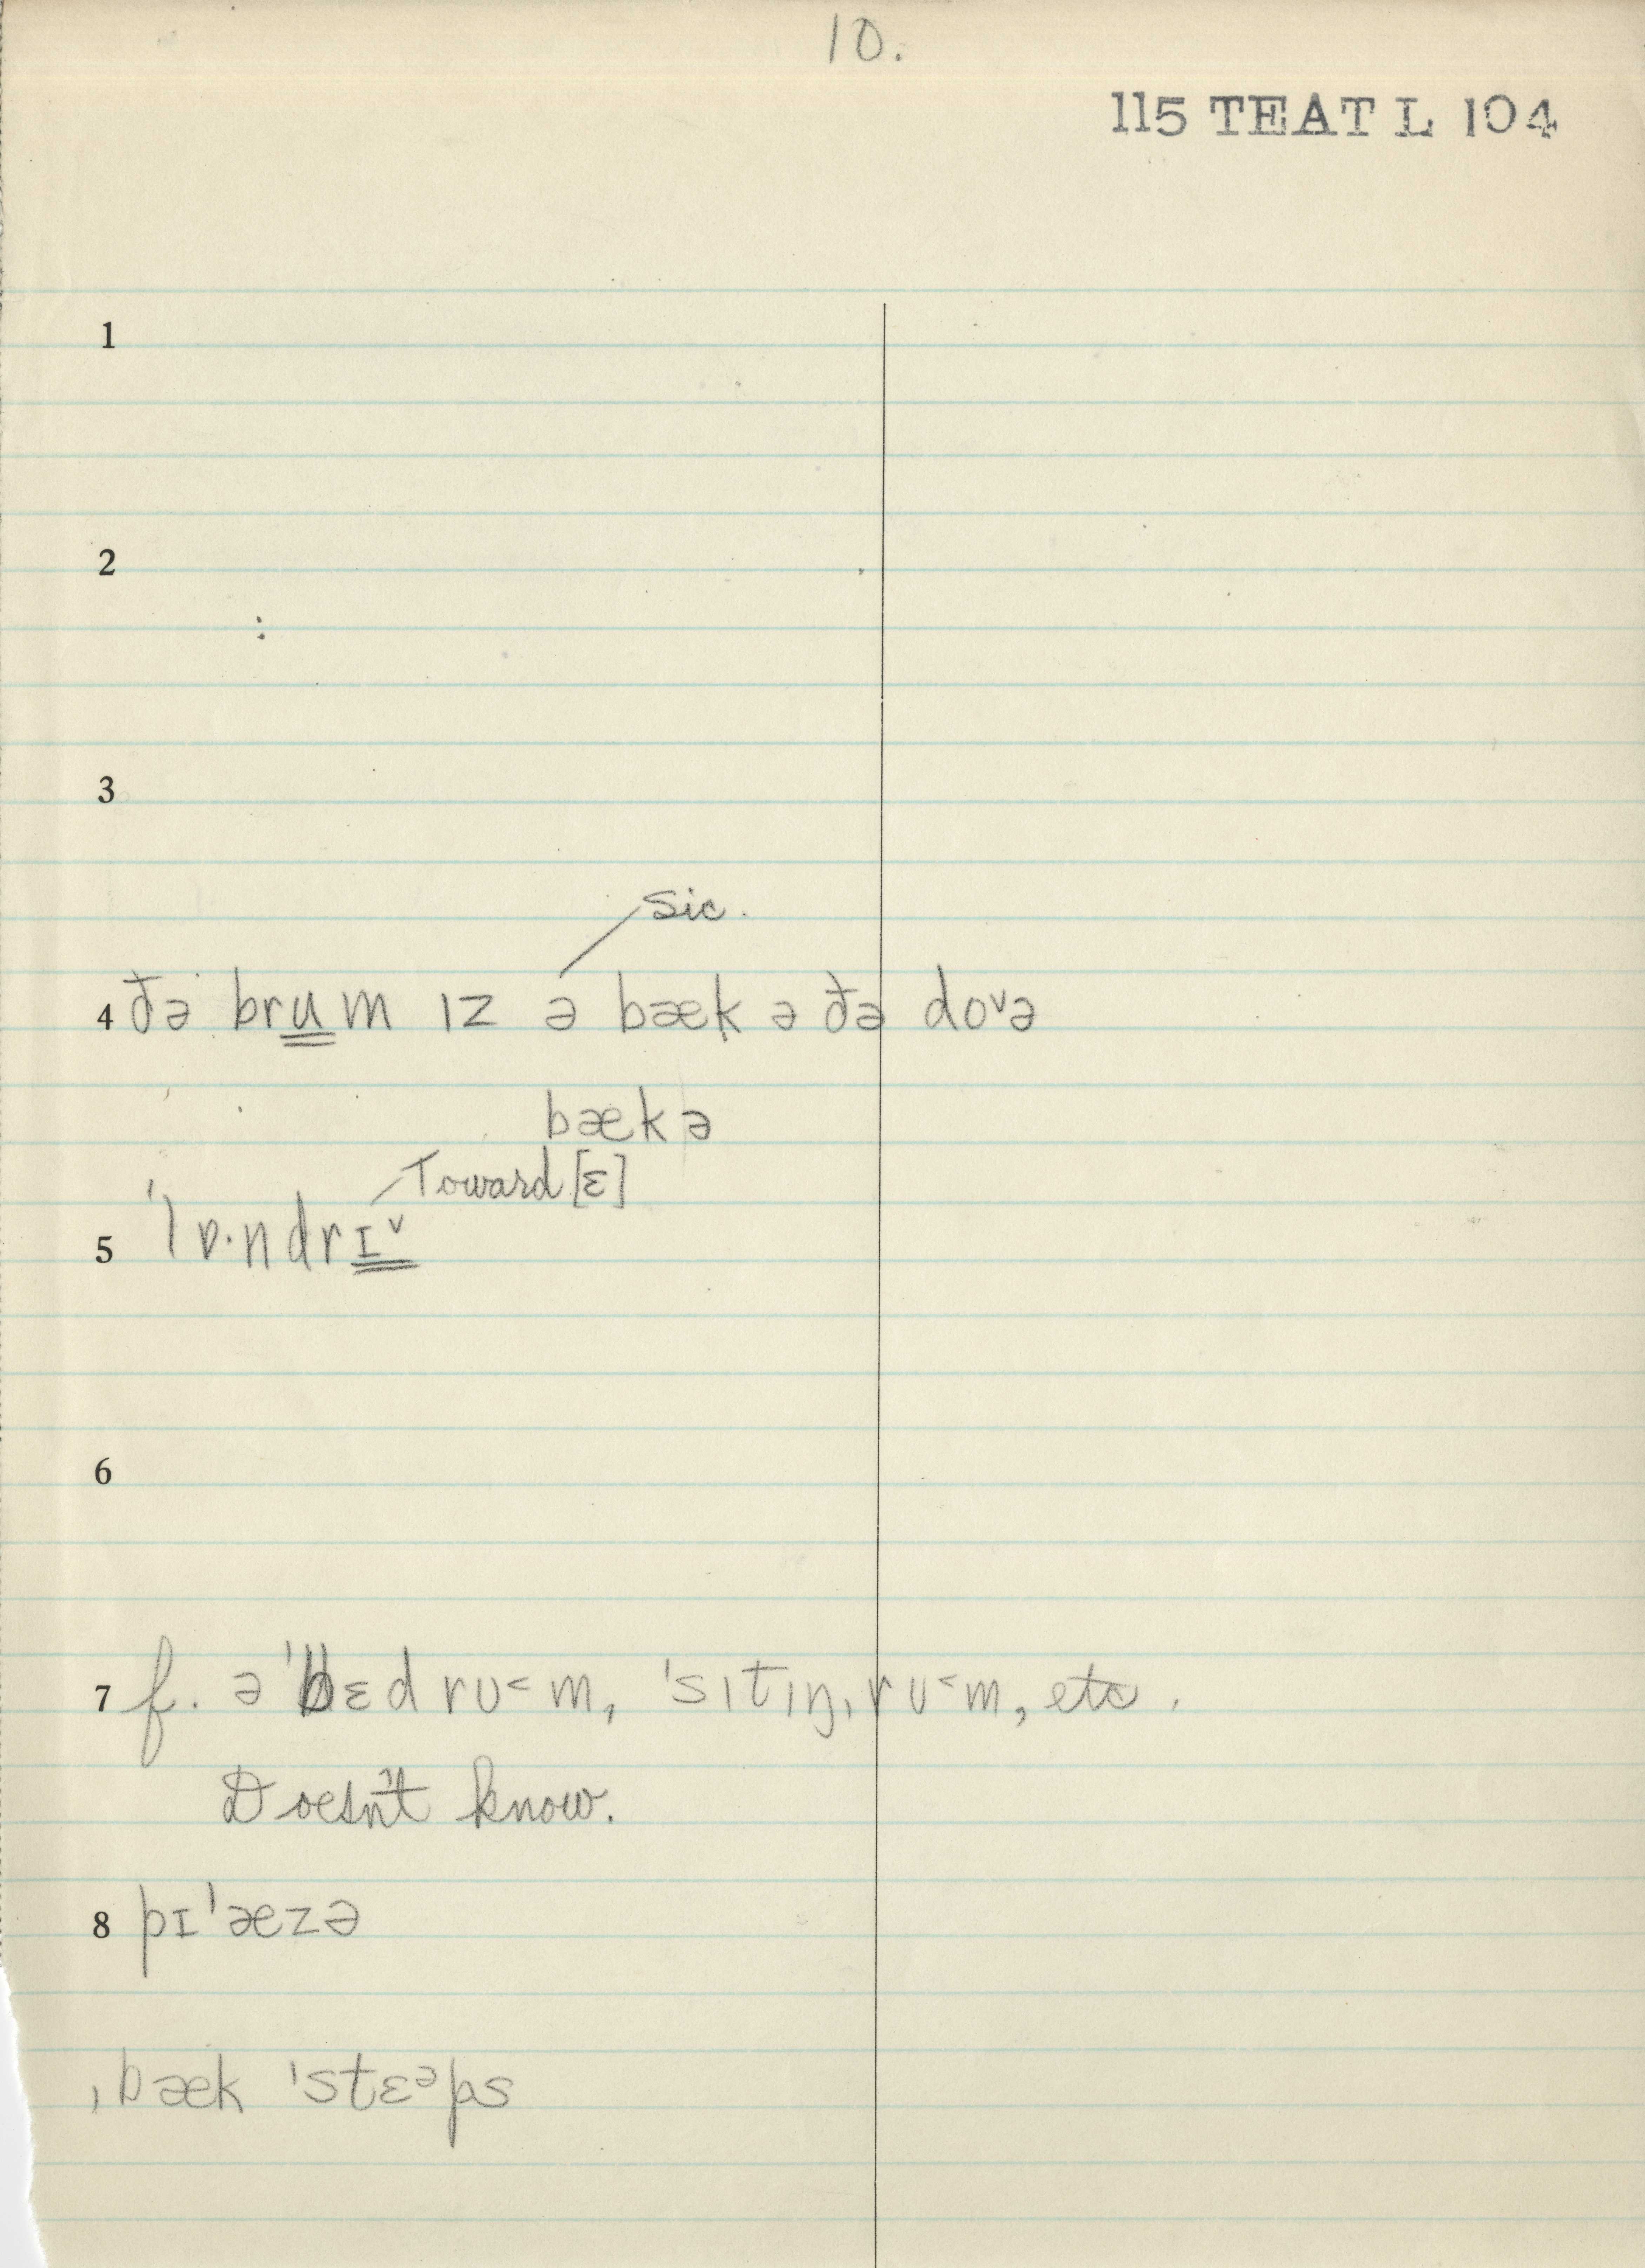 10.
115 TEAT L 104
1
2
3
sic.
4 ðə brum ɪz ə bæk ə ðə doᵛə
bæk ə
Toward [ɛ]
5 'lɒ·ndrɪᵛ
6
7 f. ə 'bɛd rʊ˂m, 'sɪtɪŋˌrʊ˂m, etc.
Doesn't know.
8 pɪ'æzə
ˌbæk 'stɛᵊps